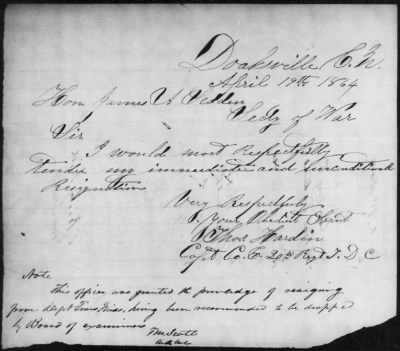 Doaksville C. N.
April 19th 1864
Hon. James A Seddon
Secty of War
Sir
I would most Respectfully
tender my immediate and unconditional
Resignation
Very Respectfully
Your Obedient Servt
Thos Hardin
Capt Co. E. 20th Regt T. D. C
Note
This officer was granted the privilege of resigning
from Dept Trans Miss, having been recommended to be dropped
by Board of examiners
T M Scott